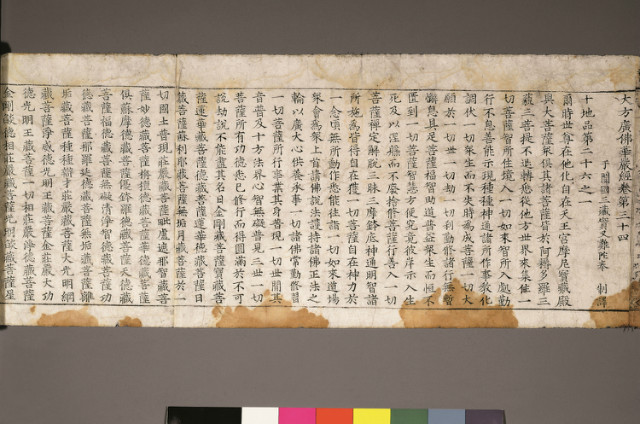 大方廣佛華嚴經卷第三十四
于闐國三藏實叉難陀奉 制譯
十地品第二十六之一
爾時世尊在他化自在天王宮摩尼寶藏殿
與大菩薩眾俱其諸菩薩皆於阿耨多羅三
藐三菩提不退轉悉從他方世界來集住一
切菩薩智所住境入一切如來智所入處勤
行不息善能示現種種神通諸所作事教化
調伏一切眾生而不失時為成菩薩一切大
願於一切世一切劫一切剎勤修諸行無暫
懈息具足菩薩福智助道普益眾生而恒不
匱到一切菩薩智慧方便究竟彼岸示入生
死及以涅槃而不廢捨修菩薩行善入一切
菩薩禪定解脫三昧三摩鉢底神通明智諸
所施為皆得自在獲一切菩薩自在神力於
一念頃無所動作悉能往詣一切如來道場
眾會為眾上首請佛說法護持諸佛正法之
輪以廣大心供養承事一切諸佛常勤修習
一切菩薩所行事業其身普現一切世間其
音普及十方法界心智無礙普見三世一切
菩薩所有功德悉已修行而得圓滿於不可
說劫說不能盡其名曰金剛藏菩薩寶藏菩
薩蓮華藏菩薩德藏菩薩蓮華德藏菩薩日
藏菩薩蘇利耶藏菩薩無垢月藏菩薩於一
切國土普現莊嚴藏菩薩毗盧遮那智藏菩
薩妙德藏菩薩栴檀德藏菩薩華德藏菩薩
俱蘇摩德藏菩薩優鉢羅德藏菩薩天德藏
菩薩福德藏菩薩無礙清淨智德藏菩薩功
德藏菩薩那羅延德藏菩薩無垢藏菩薩離
垢藏菩薩種種辯才莊嚴藏菩薩大光明網
藏菩薩淨威德光明王藏菩薩金莊嚴大功
德光明王藏菩薩一切相莊嚴淨德藏菩薩
金剛焰德相莊嚴藏菩薩光明焰藏菩薩星